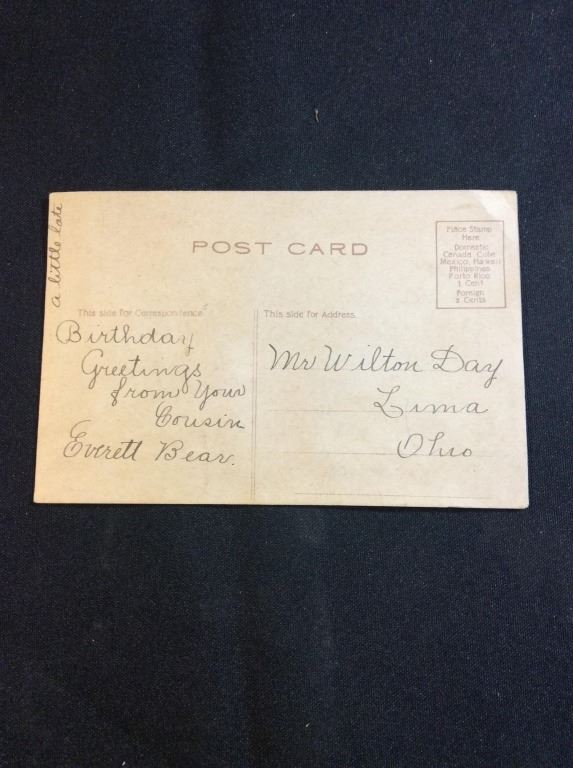 a little late
POST CARD
Place Stamp
Here
Domestic
Canada Cuba
Mexico, Hawaii
Philippines
Porto Rico
1 Cent
Foreign
2 Cents
This side for Correspondence
Birthday
Greetings
from Your
Cousin
Everett Bear.
This side for Address.
Mr Wilton Day
Lima
Ohio